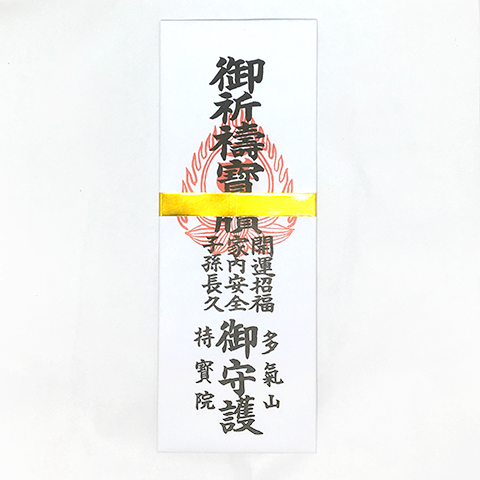 御祈禱寶牘
開運招福
家内安全
子孫長久
御守護
多氣山
持寳院